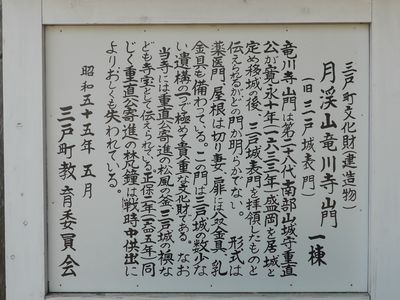 三戸町文化財(建造物)
月渓山竜川寺山門 一棟
(旧三戸城表門)
竜川寺山門は第二十八代南部山城守重直
公が寛永十年(一六三三年)盛岡を居城と
定め移城の後、三戸城表門を拝領したものと
伝えられるがどの門か明らかでない。 形式は
薬医門、屋根は切り妻、扉には八双金具、乳
金具も備わっている。この門は三戸城の数少な
い遺構の一つで極めて貴重な文化財である。なお
当寺には重直公寄進の松風の釜、三戸城の横な
ども寺宝として伝えられている。正保二年(一六四五年)同
じく重直公寄進の梵鐘は戦時中供出に
よりおしくも失われている。
昭和五十五年五月
三戸町教育委員会